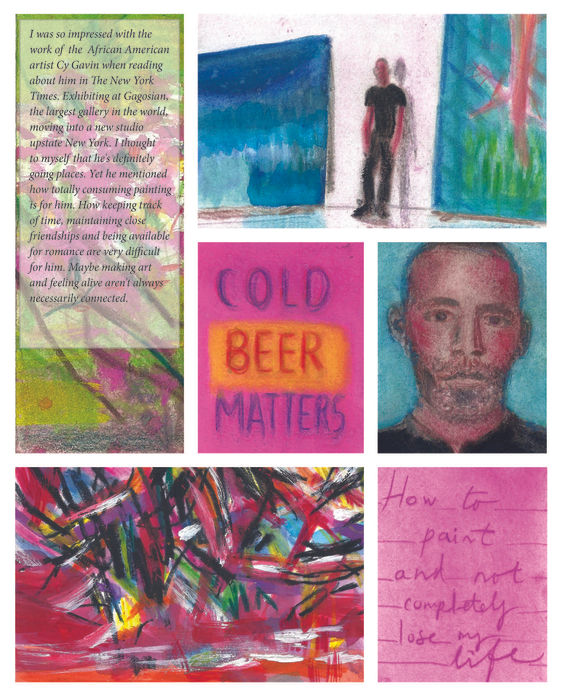 I was so impressed with the
work of the African American
artist Cy Gavin when reading
about him in The New York
Times. Exhibiting at Gagosian,
the largest gallery in the world,
moving into a new studio
upstate New York. I thought
to myself that he's definitely
going places. Yet he mentioned
how totally consuming painting
is for him. How keeping track
of time, maintaining close
friendships and being available
for romance are very difficult
for him. Maybe making art
and feeling alive aren't always
necessarily connected.
COLD
BEER
MATTERS
How to
paint
and not
completely
lose my
life